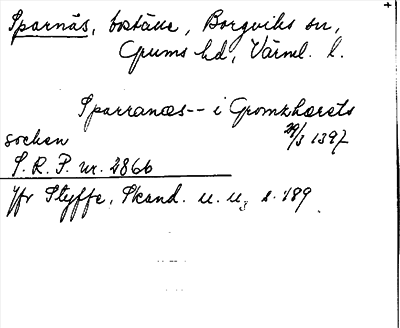 Sparnäs, boställe, Borgviks sn,
Grums hd, Värml. l.
Sparranæs -- i Gromzhærets
socken 29/3 1397
S. R. P. nr. 2866
Jfr Styffe, Skand. u. u., s. 189.